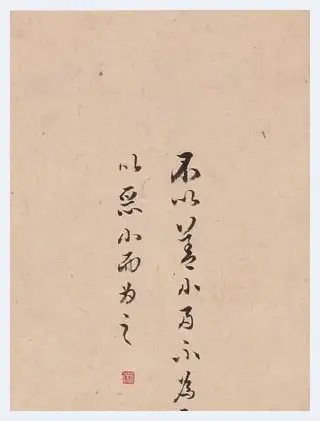 不以善小而不為
以恶小而为之